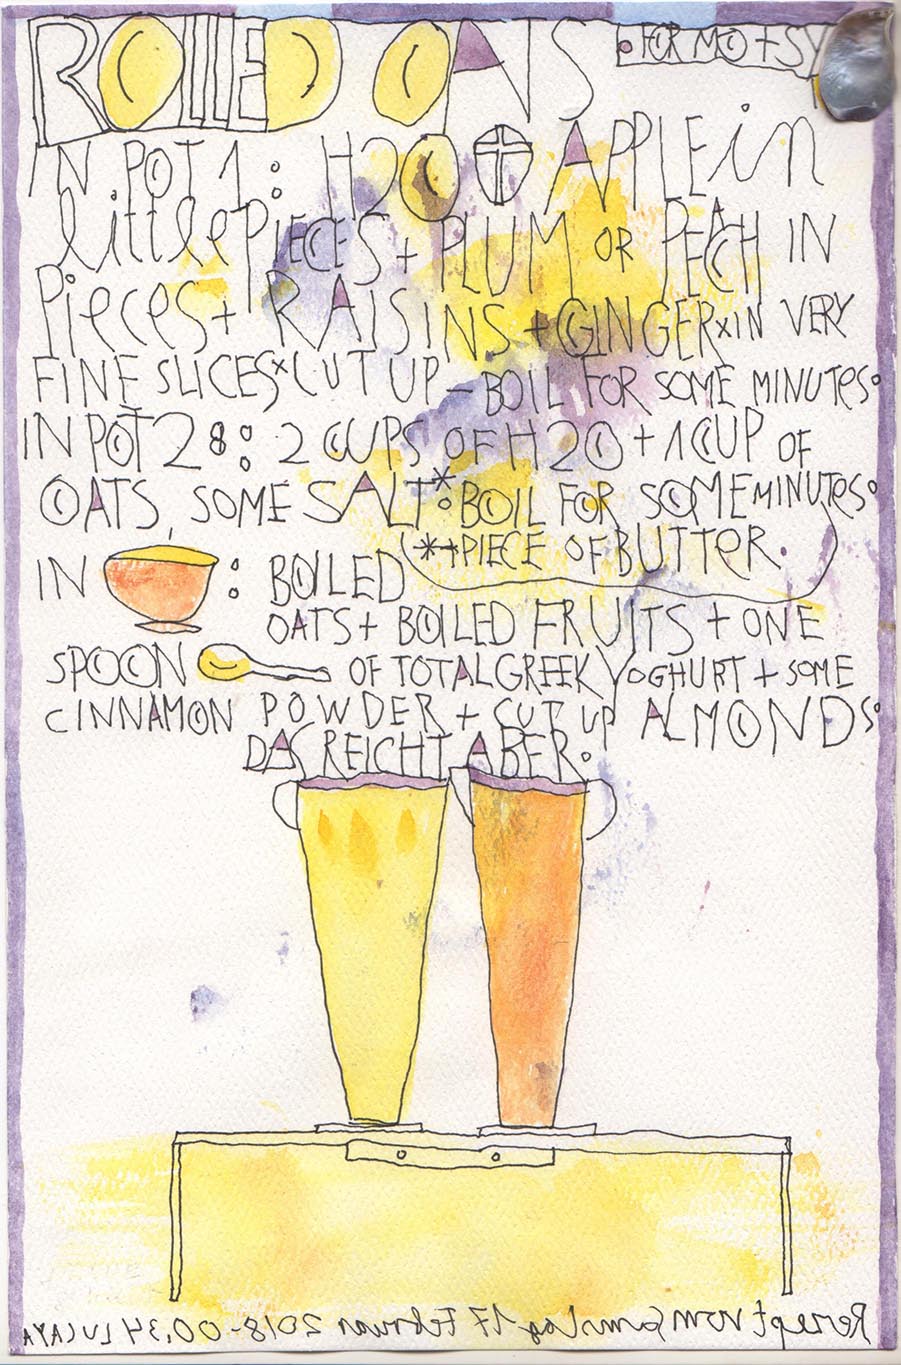 ROLLED OATS
• FOR MO+SY
IN POT 1: H2O + APPLE in
little PIECES + PLUM OR PEACH IN
Pieces + RAISINS + GINGER x IN VERY
FINE SLICES x CUT UP – BOIL FOR SOME MINUTES.
IN POT 2: 2 CUPS OF H2O + 1 CUP OF
OATS, SOME SALT*. BOIL FOR SOME MINUTES.
*+PIECE OF BUTTER.
IN : BOILED
OATS + BOILED FRUITS + ONE
SPOON OF TOTAL GREEK YOGHURT + SOME
CINNAMON POWDER + CUT UP ALMONDS.
DAS REICHT ABER.
Rezept vom Samstag 17 Februar 2018-00.34 LUCAYA